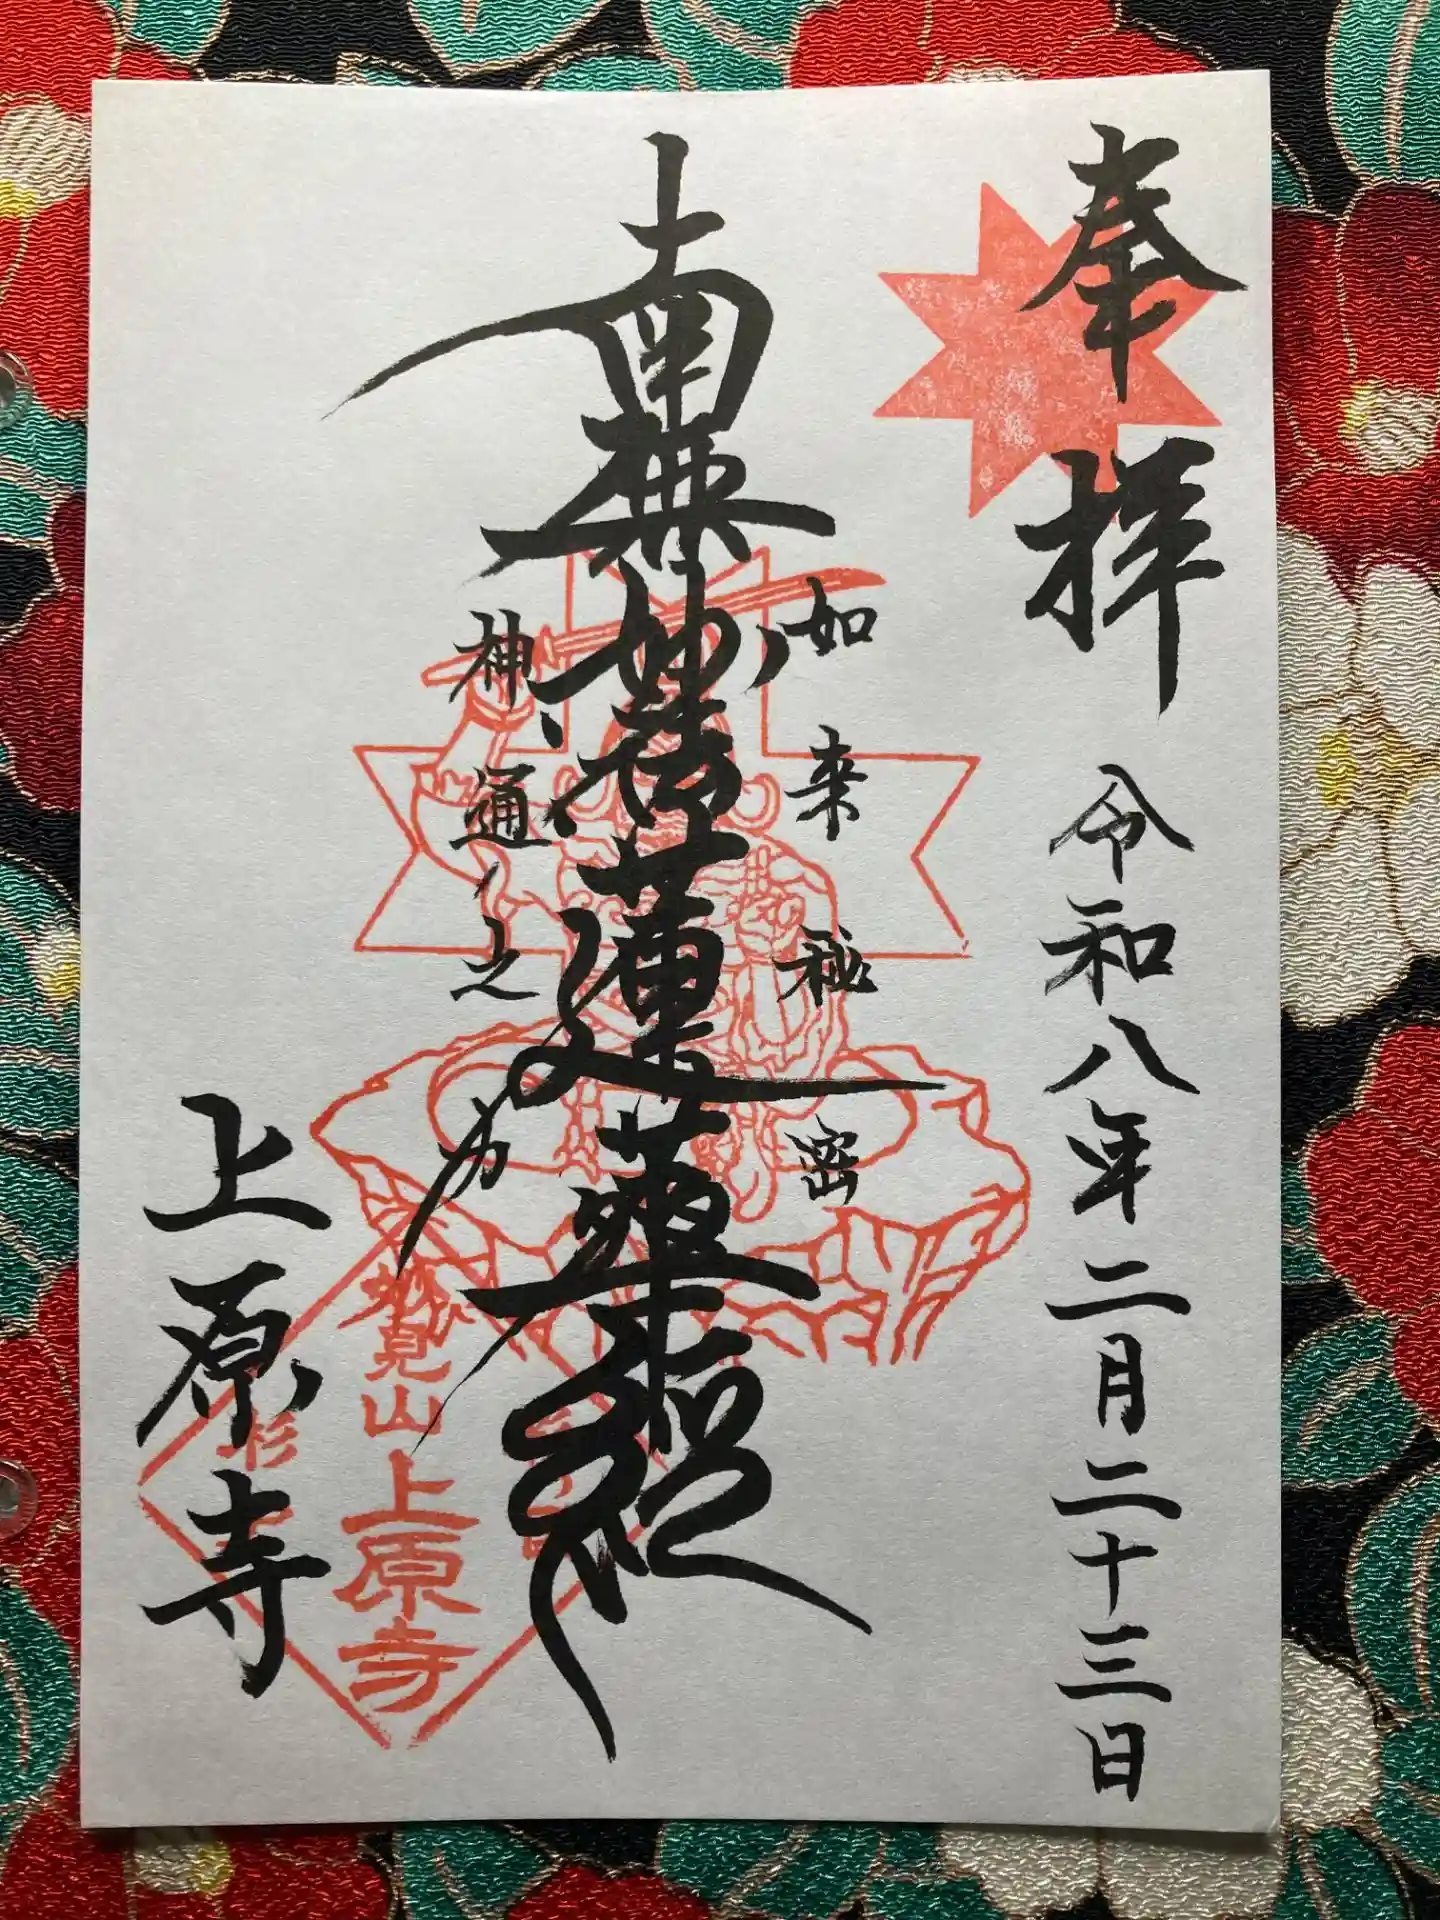 奉拝
令和八年二月二十三日
如来秘密
南無妙法蓮華経
神通之力
妙見山
上原寺
上原寺
杉